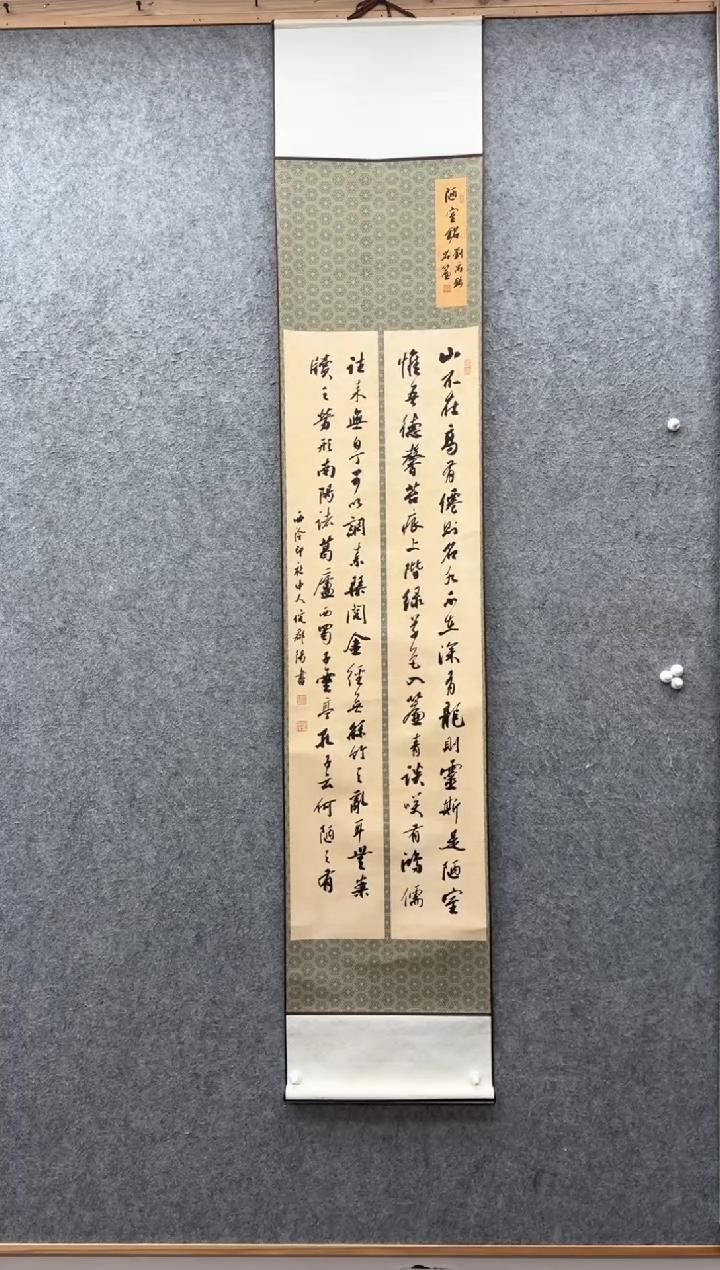 陋室銘
劉禹錫
名篇
山不在高有僊則名水不在深有龍則靈斯是陋室
惟吾德馨苔痕上階緑草色入簾青談笑有鴻儒
往来無白丁可以調素琴閲金經無絲竹之亂耳無案
牘之勞形南陽諸葛廬西蜀子雲亭孔子云何陋之有
西泠印社中人 陽書